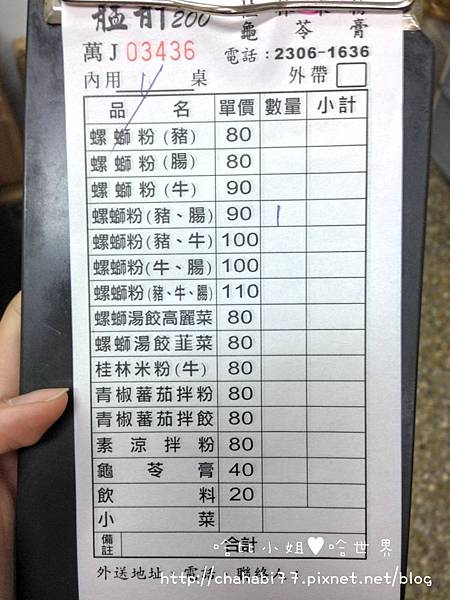 艋舺200
龜苓膏
萬J 03436
電話：2306-1636
內用 1 桌 外帶
品名 單價 數量 小計
螺螄粉(豬) 80
螺螄粉(腸) 80
螺螄粉(牛) 90
螺螄粉(豬、腸) 90 1
螺螄粉(豬、牛) 100
螺螄粉(牛、腸) 100
螺螄粉(豬、牛、腸) 110
螺螄湯餃高麗菜 80
螺螄湯餃韮菜 80
桂林米粉(牛) 80
青椒蕃茄拌粉 80
青椒蕃茄拌餃 80
素涼拌粉 80
龜苓膏 40
飲料 20
小菜
備註 合計
哈比小姐♥哈世界
外送地址，電話，聯絡人：
http://chahabi77.pixnet.net/blog